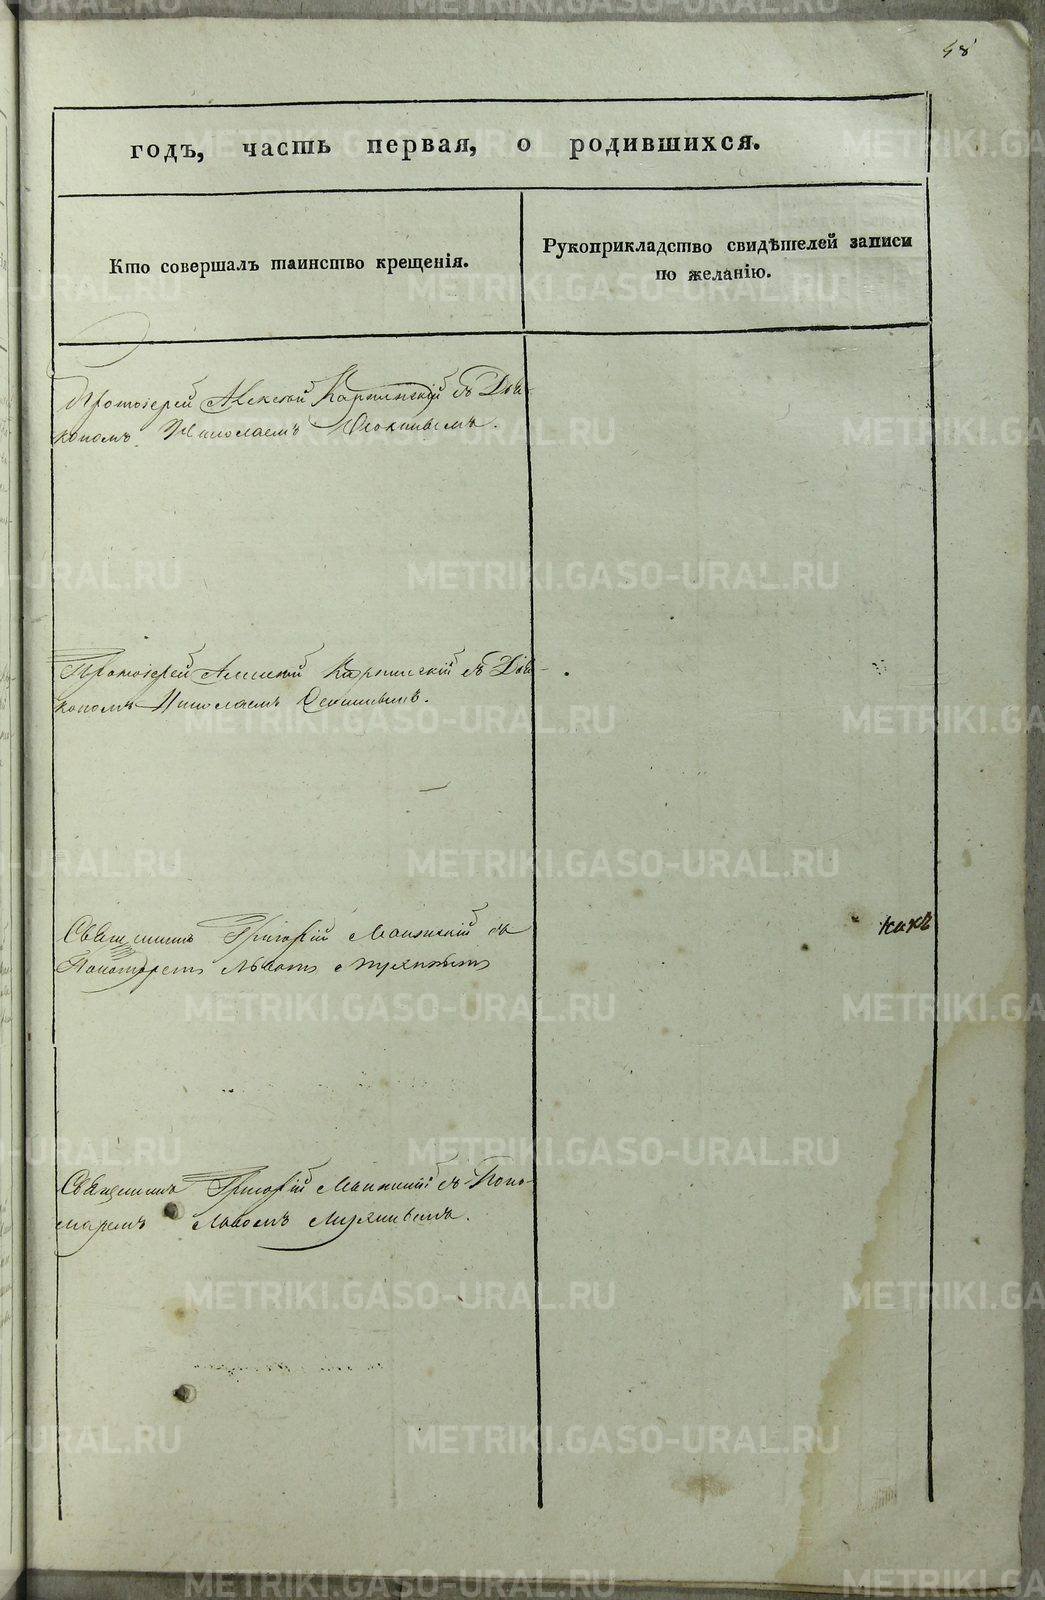 48
годъ, часть первая, о родившихся.
Кто совершалъ таинство крещенія.
Рукоприкладство свидѣтелей записи
по желанію.
Протоіерей Алексѣй Карпинскій съ Діа-
кономъ Николаемъ
Протоіерей Алексѣй Карпинскій съ Діа-
кономъ Николаемъ
Священникъ Григорій съ
Пономаремъ Львомъ
какъ
Священникъ Григорій съ Поно-
маремъ Львомъ
METRIKI.GASO-URAL.RU